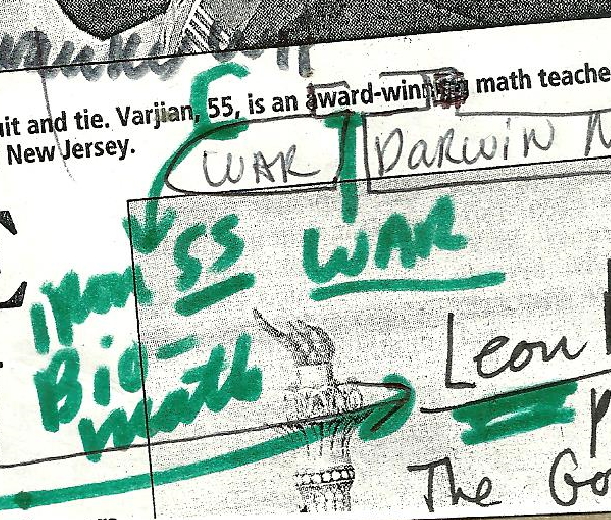 uit and tie. Varjian, 55, is an award-winning math teache
New Jersey.
WAR DARWIN
55 WAR
Bio-
math
Leon
The Go